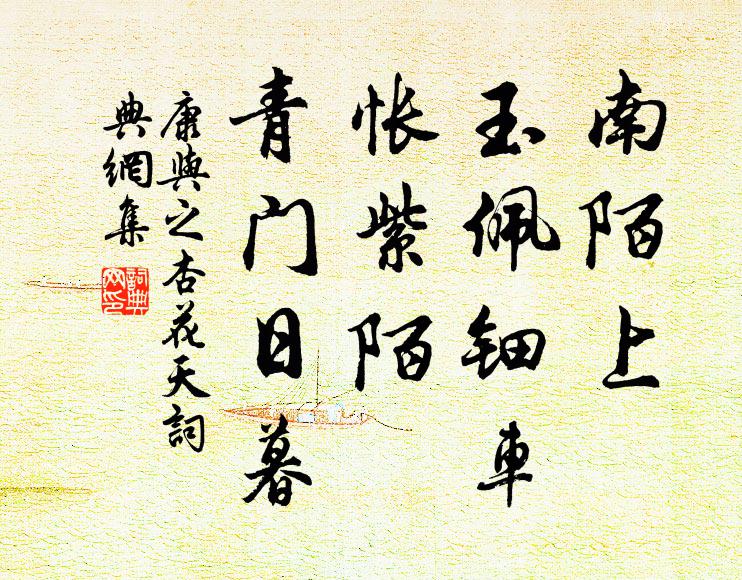 南陌上
玉佩钿車
怅紫陌
青门日暮
康與之杏花天詞
典網集
詞典
网印